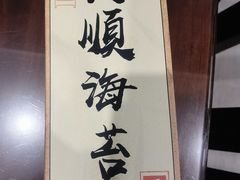 順海苔